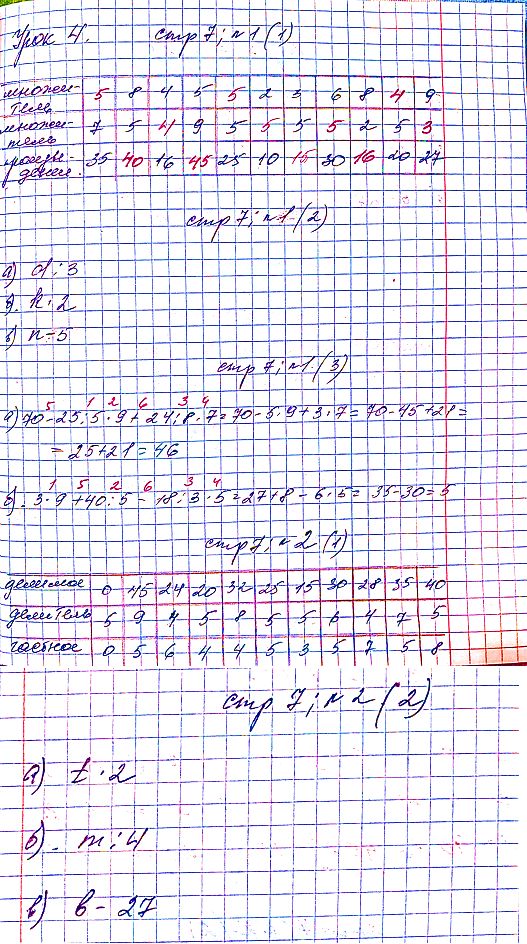 Урок 4. стр 7; № 1 (1)
множи- 5 8 4 5 5 2 3 6 8 4 9
тель
множи- 7 5 4 9 5 5 5 5 2 5 3
тель
произве- 35 40 16 45 25 10 15 30 16 20 27
дение.
стр 7; № 1. (2)
а) d : 3
б). k · 2
в) n - 5
стр 7; № 1. (3)
5 1 2 6 3 4
а) 70 - 25 : 5 · 9 + 24 : 8 · 7 = 70 - 5 · 9 + 3 · 7 = 70 - 45 + 21 =
= 25 + 21 = 46
1 5 2 6 3 4
б). 3 · 9 + 40 : 5 - 18 : 3 · 5 = 27 + 8 - 6 · 5 = 35 - 30 = 5
стр 7; № 2 (1)
делимое 0 45 24 20 32 25 15 30 28 35 40
делитель 5 9 4 5 8 5 5 6 4 7 5
частное 0 5 6 4 4 5 3 5 7 5 8
стр 7; № 2 (2)
а) t · 2
б). m : 4
в) b - 27